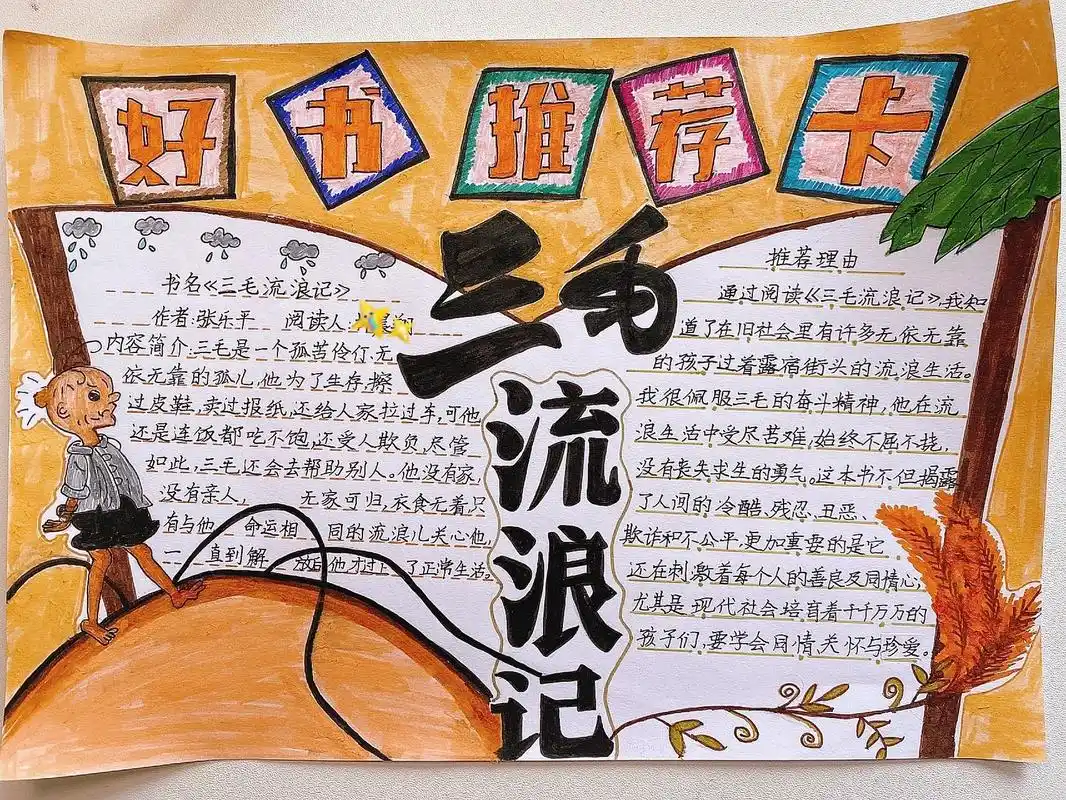 好书推荐卡
三毛
流浪记
书名《三毛流浪记》
作者:张乐平 阅读人:
内容简介:三毛是一个孤苦伶仃、无
依无靠的孤儿,他为了生存,擦
过皮鞋,卖过报纸,还给人家拉过车,可他
还是连饭都吃不饱,还受人欺负,尽管
如此,三毛还会去帮助别人。他没有家,
没有亲人, 无家可归,衣食无着只
有与他 命运相 同的流浪儿关心他,
一 直到解 放后他才过上了正常生活。
推荐理由
通过阅读《三毛流浪记》,我知
道了在旧社会里有许多无依无靠
的孩子过着露宿街头的流浪生活。
我很佩服三毛的奋斗精神,他在流
浪生活中受尽苦难,始终不屈不挠,
没有丧失求生的勇气。这本书不但揭露
了人间的冷酷、残忍、丑恶、
欺诈和不公平,更加重要的是它
还在刺激着每个人的善良及同情心,
尤其是现代社会培育着千千万万的
孩子们,要学会同情、关怀与珍爱。